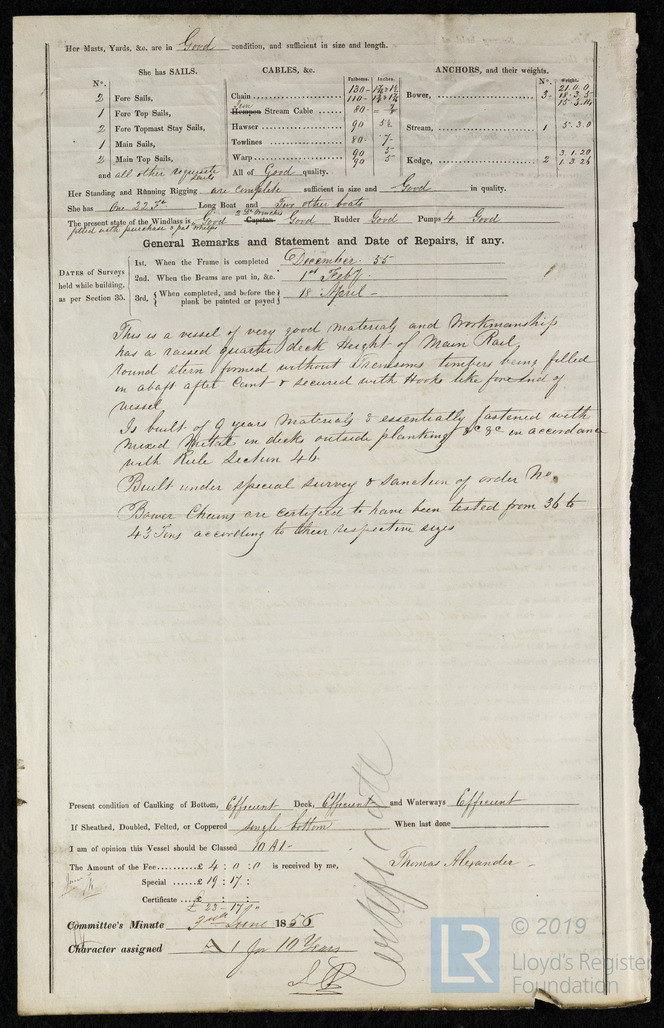 Her Masts, Yards, &c. are in Good condition, and sufficient in size and length.
She has SAILS. CABLES, &c. ANCHORS, and their weights.
N°. Fathoms. Inches. N°. Weight.
2 Fore Sails,
1 Fore Top Sails,
2 Fore Topmast Stay Sails,
1 Main Sails,
2 Main Top Sails,
and all other requisite sails
Chain 130
110
Hempen Stream Cable 80
Hawser 90 5½
Towlines 80 7
Warp 90 5
90 5
All of Good quality.
Bower, 3 21.0.0
18.3.5
15.3.14
Stream, 1 5.3.0
Kedge, 2 3.1.20
1.3.26
Her Standing and Running Rigging are complete sufficient in size and Good in quality.
She has One 22.5ft Long Boat and Two other boats
The present state of the Windlass is Good Capstan Good Rudder Good Pumps 4 Good
fitted with purchase & pat whelps
General Remarks and Statement and Date of Repairs, if any.
DATES of Surveys held while building, as per Section 35.
1st. When the Frame is completed December 55
2nd. When the Beams are put in, &c. 1st Feby.
3rd, When completed, and before the plank be painted or payed 18 April
This is a vessel of very good materials and workmanship
has a raised quarter deck height of Main Rail,
round stern formed without Transoms timbers being filled
in abaft after Cant & secured with Hooks like fore end of
vessel
Is built of 9 years Materials & essentially fastened with
mixed Metal in decks outside planking &c &c in accordance
with Rule Section 46.
Built under special survey & sanction of order No.
Bower Chains are certified to have been tested from 36 to
43 Tons according to their respective sizes
Present condition of Caulking of Bottom, Efficient Deck, Efficient and Waterways Efficient
If Sheathed, Doubled, Felted, or Coppered single bottom When last done
I am of opinion this Vessel should be Classed 10 A1
The Amount of the Fee £ 4 : 0 : 0 is received by me, Thomas Alexander
Special £ 19 : 17 :
Certificate £ : :
£ 23 - 17 "
Certificate
Committee's Minute 3rd June 1856
Character assigned A 1 for 10 Years
LR © 2019
Lloyd's Register
Foundation